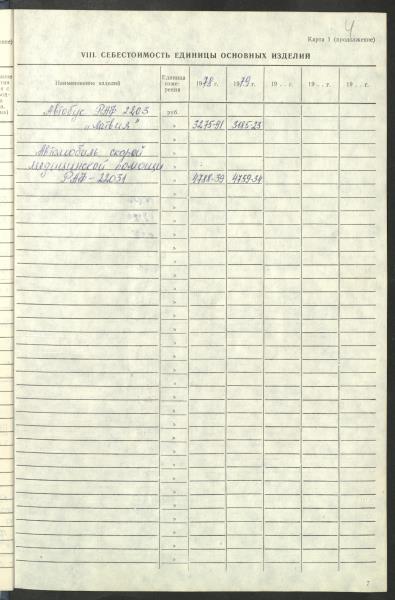 4
Карта 1 (продолжение)
VIII. СЕБЕСТОИМОСТЬ ЕДИНИЦЫ ОСНОВНЫХ ИЗДЕЛИЙ
Наименование изделий Единица изме-рения 1978 г. 1979 г. 19 . . г. 19 . . г. 19 . . г.
Автобус РАФ 2203 руб.
„Латвия" " 3275-91
Автомобиль скорой "
медицинской помощи "
РАФ-22031 " 4788-39 4759-34
7